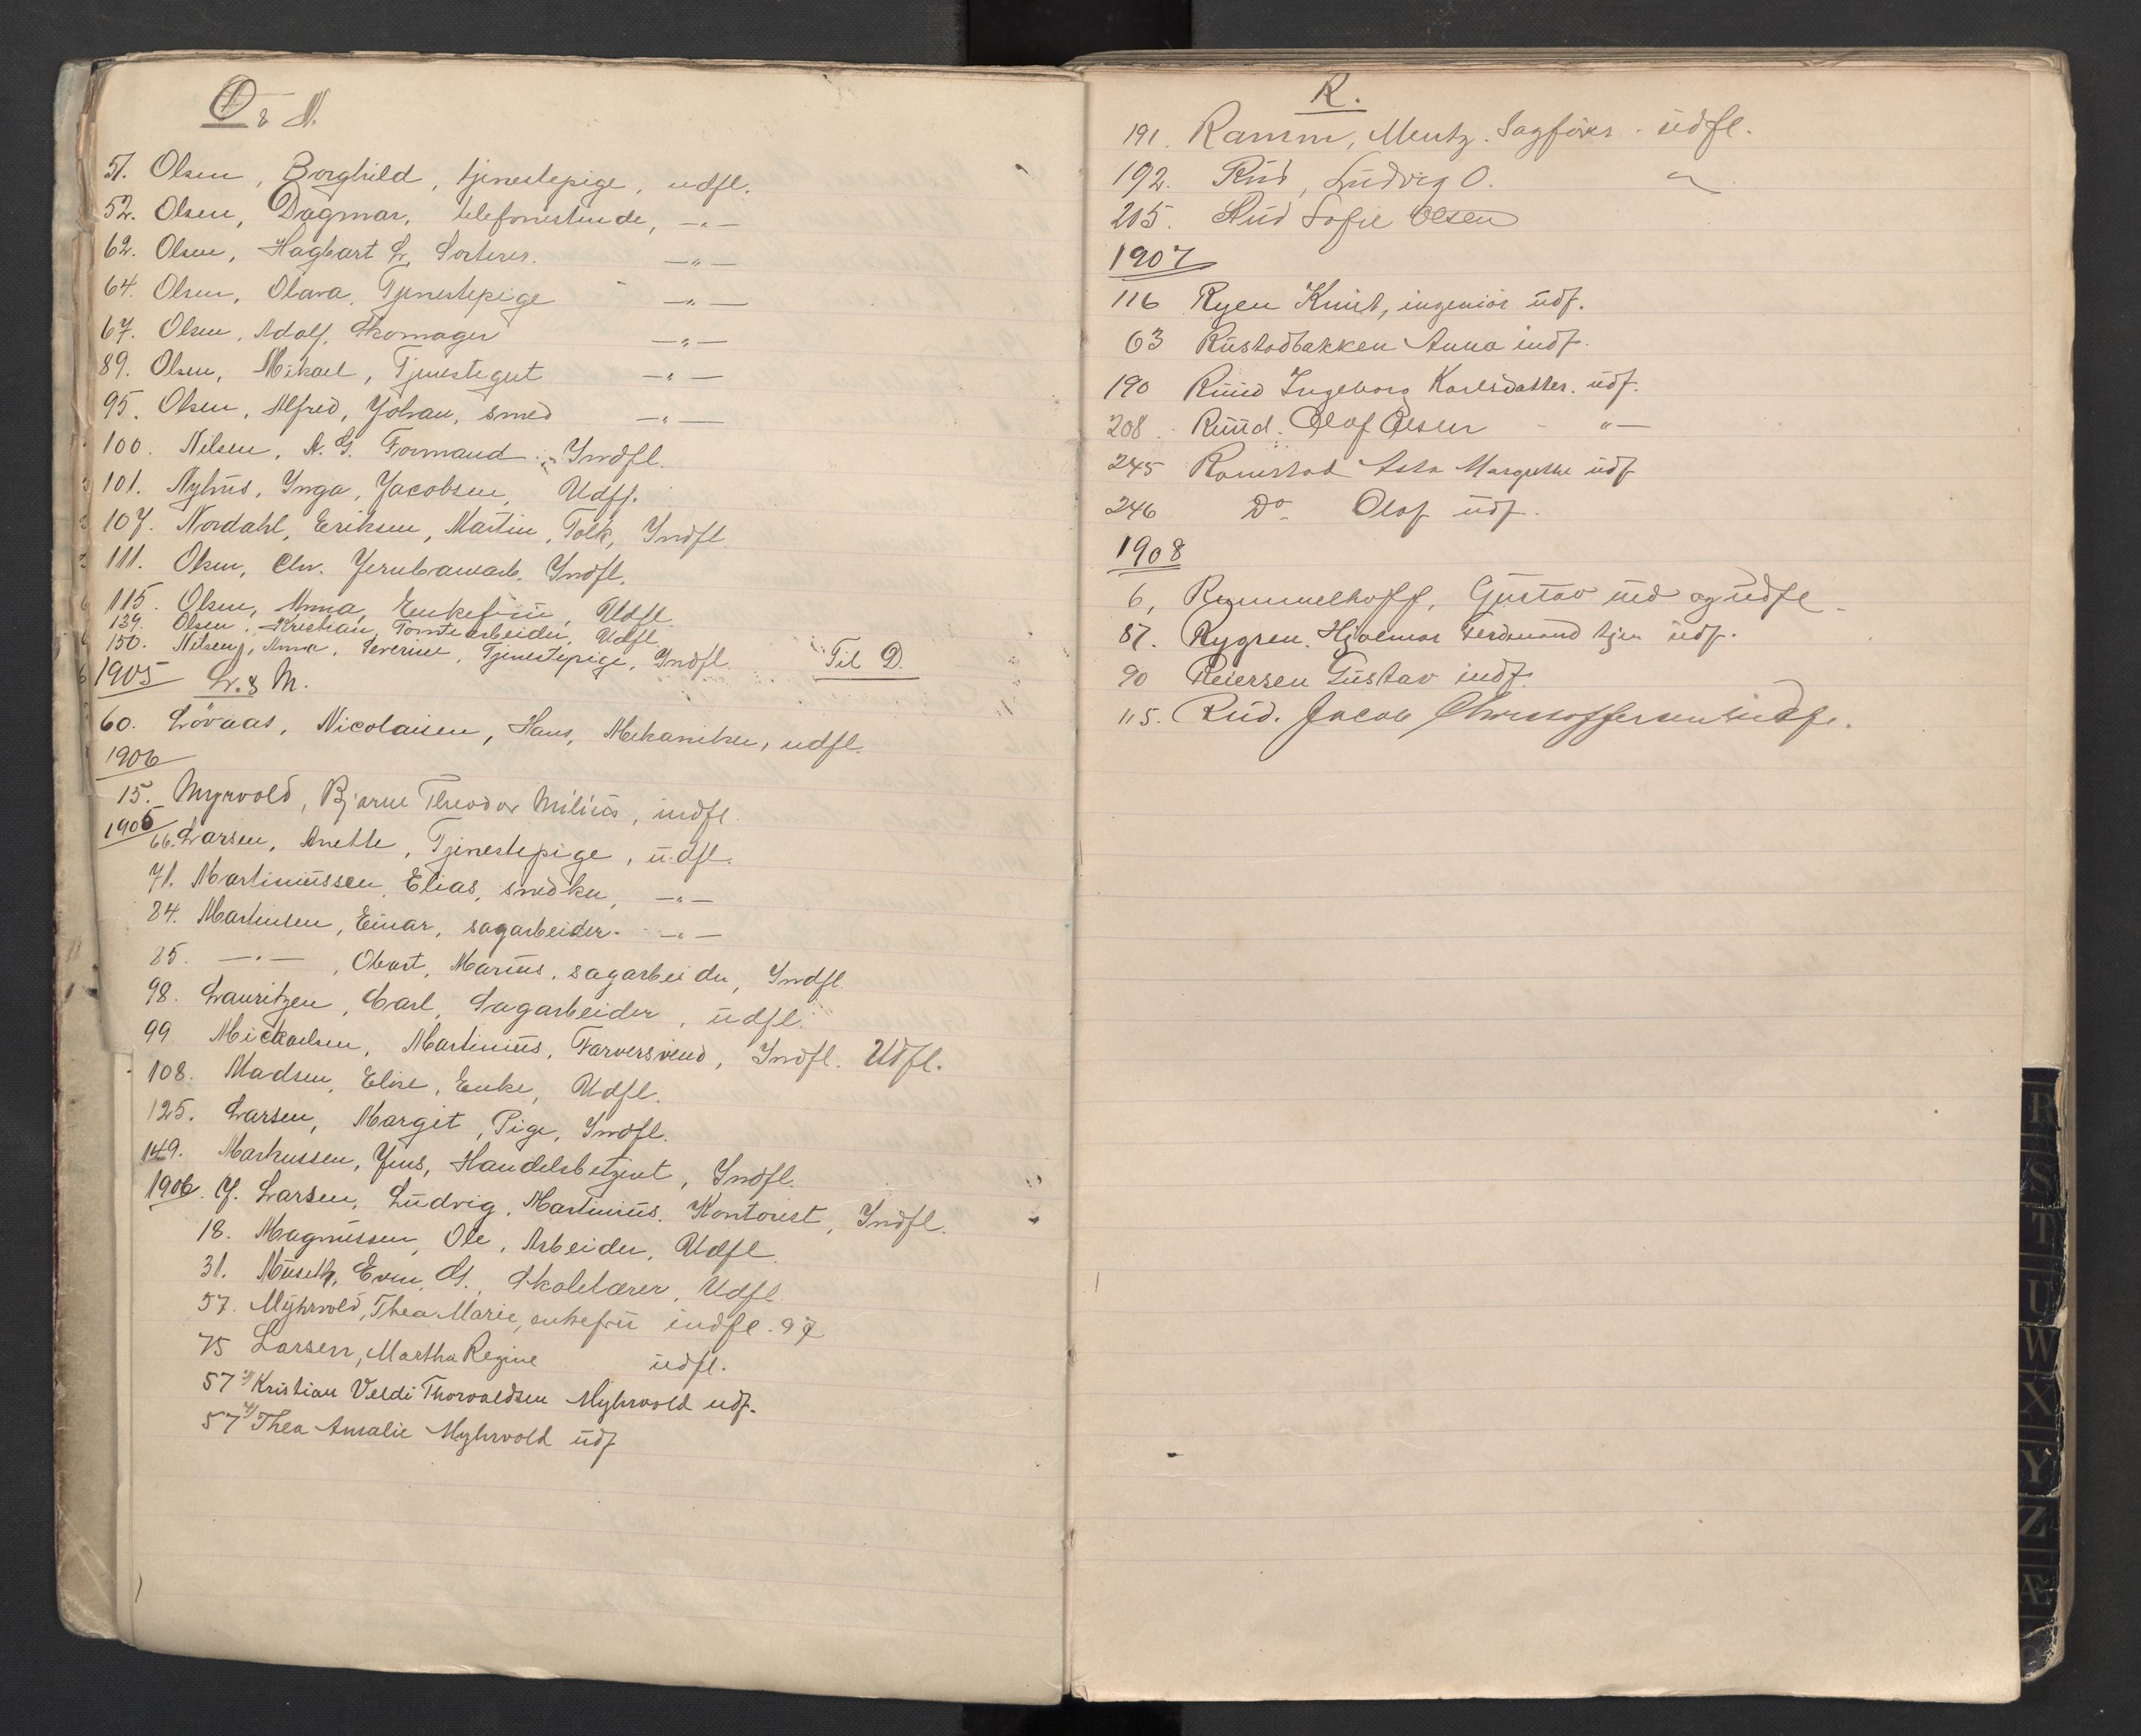 O & N.
51. Olsen, Borghild, tjenestepige, udfl.
52. Olsen, Dagmar, telefonistinde, —"—
62. Olsen, Hagbart L. Sorterer. —"—
64. Olsen, Olava, Tjenestepige —"—
67. Olsen, Adolf, Skomager —"—
89. Olsen, Mikael, Tjenestegut —"—
95. Olsen, Alfred, Johan, smed —"—
100. Nilsen, A. G. Formand. Indfl.
101. Nyhus, Inga, Jacobsen, Udfl.
107. Nordahl, Eriksen, Martin, Tolk, Indfl.
111. Olsen, Chr. Jernbanearb. Indfl.
115. Olsen, Anna, Enkefrü, Udfl.
139. Olsen, Kristian, Tomtearbeider, Udfl.
150. Nilsen, Anna, Severine, Tjenestepige, Indfl. Til D.
1905 L. & M.
60. Lövaas, Nicolaisen, Hans, Mekaniker, udfl.
1906
15. Myrvold, Bjarne Theodor Milius, indfl.
1905
66. Larsen, Anette, Tjenestepige, udfl.
71. Martiniussen, Elias, snedker, —"—
84. Martinsen, Einar, sagarbeider. —"—
85. —"—, Obert, Marius, sagarbeider, Indfl.
98. Lauritzen, Carl, Sagarbeider, udfl.
99 Mickaelsen, Martinius, Farversvend, Indfl. Udfl.
108. Madsen, Elise, Enke, Udfl.
125. Larsen, Margit, Pige, Indfl.
149. Markussen, Jens, Handelsbetjent, Indfl.
1906. 7. Larsen, Ludvig, Martinius, Kontorist, Indfl.
18. Magnussen, Ole, Arbeider, Udfl.
31. Museth, Even, Skolelærer, Udfl.
57. Myhrvold, Thea Marie, enkefrü indfl.
75 Larsen, Martha Regine udfl.
57 3) Kristian Veldi Thorvaldsen Myhrvold udf.
57 4) Thea Amalie Myhrvold udf
R.
191. Ramm, Mentz. Sagförer. udfl.
192. Rüd, Ludvig O. "
205. Rüd Sofie Olsen
1907
116 Ryen Knut, ingeniör udf.
63 Rustadbakken Anna indf.
190 Ruud Ingeborg Karlsdatter. udf.
208. Ruud. Olaf Olsen - "—
245 Ramstad Asta Margrethe udf
246 Do Olaf udf.
1908
6, Rummelhoff, Gustav ind og udfl.
87. Rygren. Hjalmar Ferdinand tjen udf.
90 Reiersen Gustav indf.
115. Rüd. Jacob Christoffersen indfl.
R
S
T
U
W
X
Y
Z
Æ